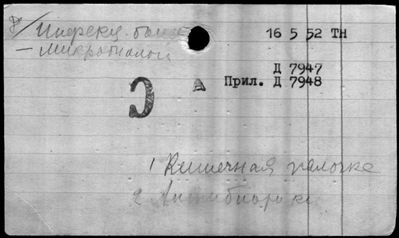 Инфекц. бол
16 5 52 ТН
— микробиолог
Д 7947
Э А Прил. Д 7948
1 Кишечная палочка
2 Антибиотики